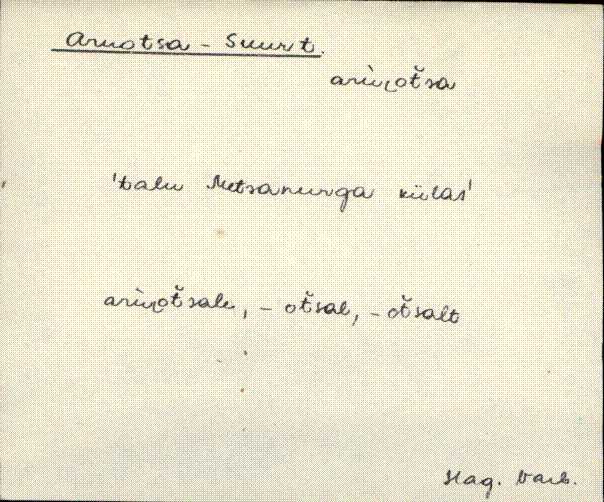 Aruotsa - Suurt.
arùu̯otšsa
'talu Metsanurga külas'
arùu̯otšsale, - otšsal, - otšsalt
Hag. Varb.